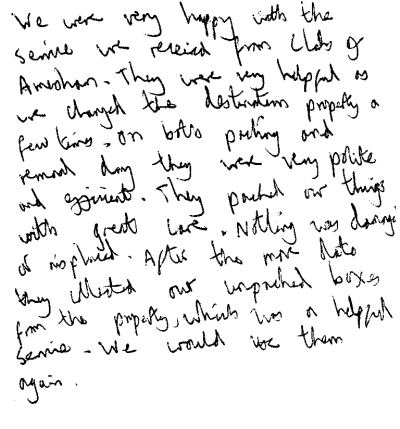 We were very happy with the
service we received from Clarks of
Amersham. They were very helpful as
we changed the destination property a
few times. On both packing and
removal day they were very polite
and efficient. They packed our things
with great care. Nothing was damaged
or misplaced. After the move date
they collected our unpacked boxes
from the property, which was a helpful
service. We would use them
again.